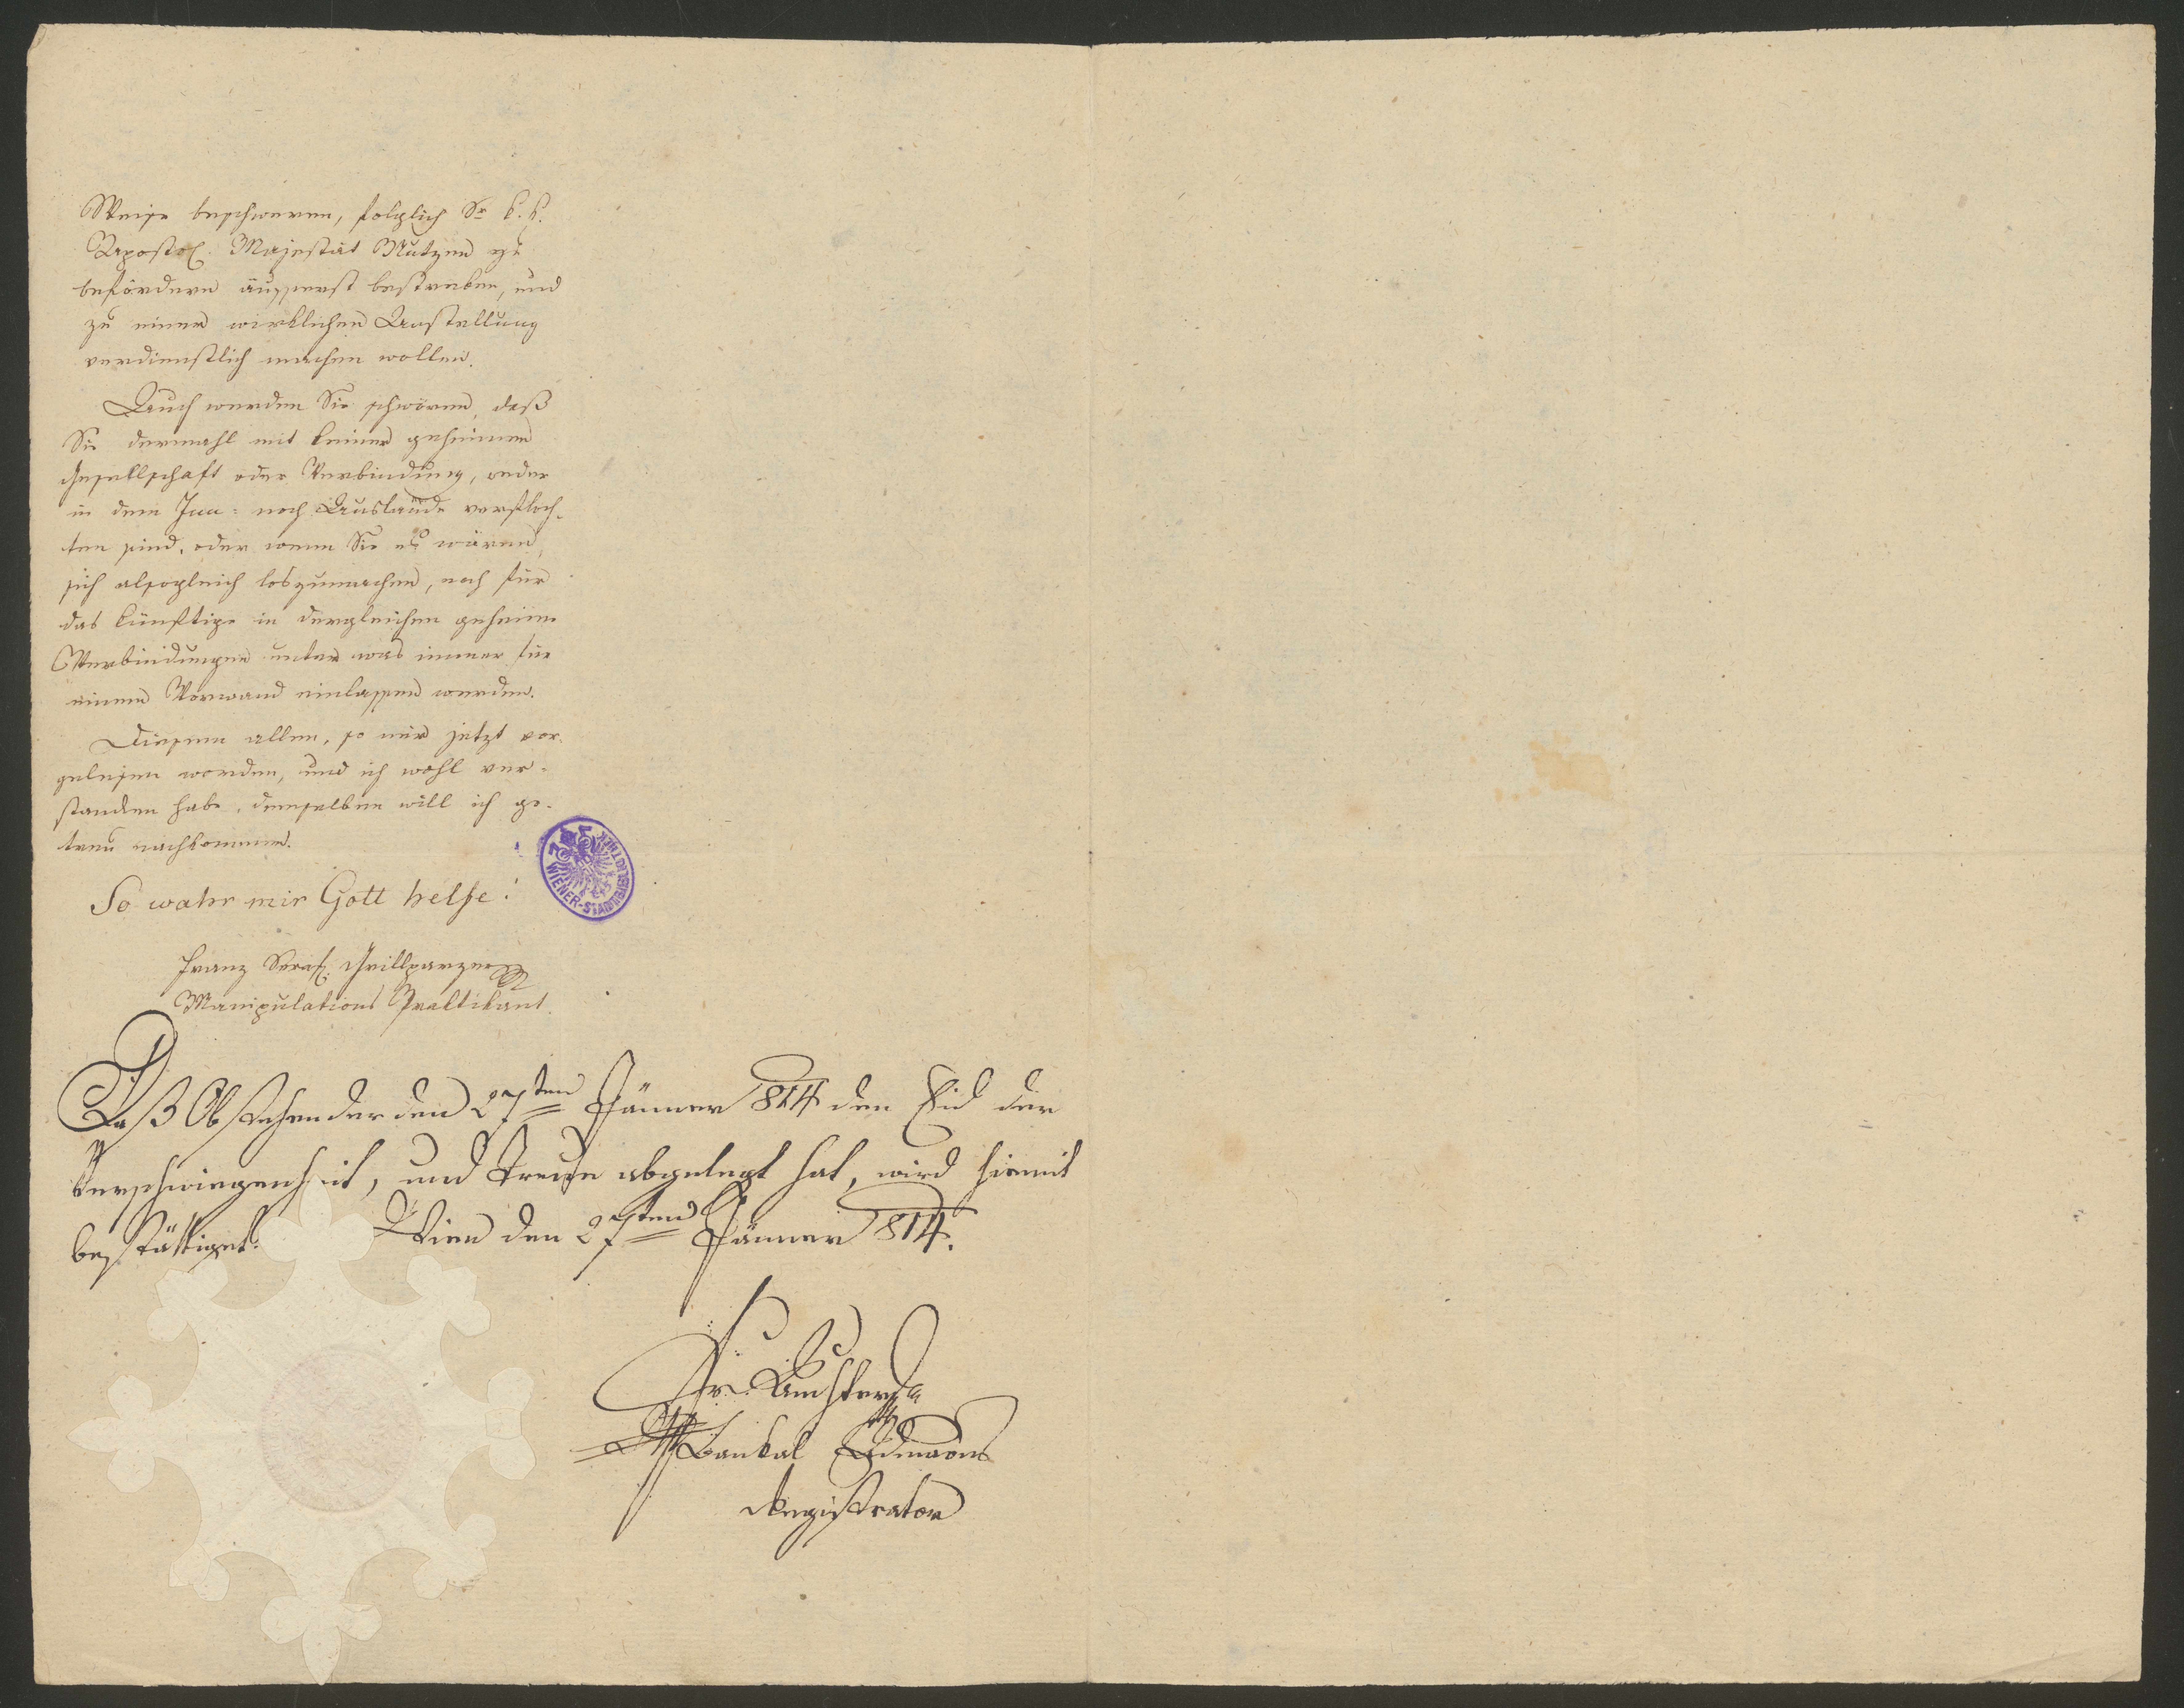 Weise beschweren, folglich Sr k. k.
Apostol. Majestät Nutzen zu
befördern äusserst bestreben, und
zu einer wirklichen Anstellung
verdienstlich machen wollen.
Auch werden Sie schwören, daß
Sie dermahl mit keiner geheimen
Gesellschaft oder Verbindung, weder
in dem Inn= noch Auslande verfloch-
ten sind, oder wenn Sie es wären,
sich alsogleich loszumachen, noch für
das künftige in dergleichen geheime
Verbindungen unter was immer für
einem Vorwand einlassen werden.
Diesem allen, so mir jetzt vor-
gelesen worden, und ich wohl ver-
standen habe, demselben will ich ge-
treu nachkommen.
So wahr mir Gott helfe!
Franz Seraf. Grillparzer
Manipulations Praktikant.
WIENER-STADTBIBLIOTHEK
Daß Obstehender den 27ten Jänner 814 den Eid der
Verschwiegenheit, und Treue abgelegt hat, wird hiemit
bestättiget. Wien den 27ten Jänner 814.
Fr.
Bankal
Registrator